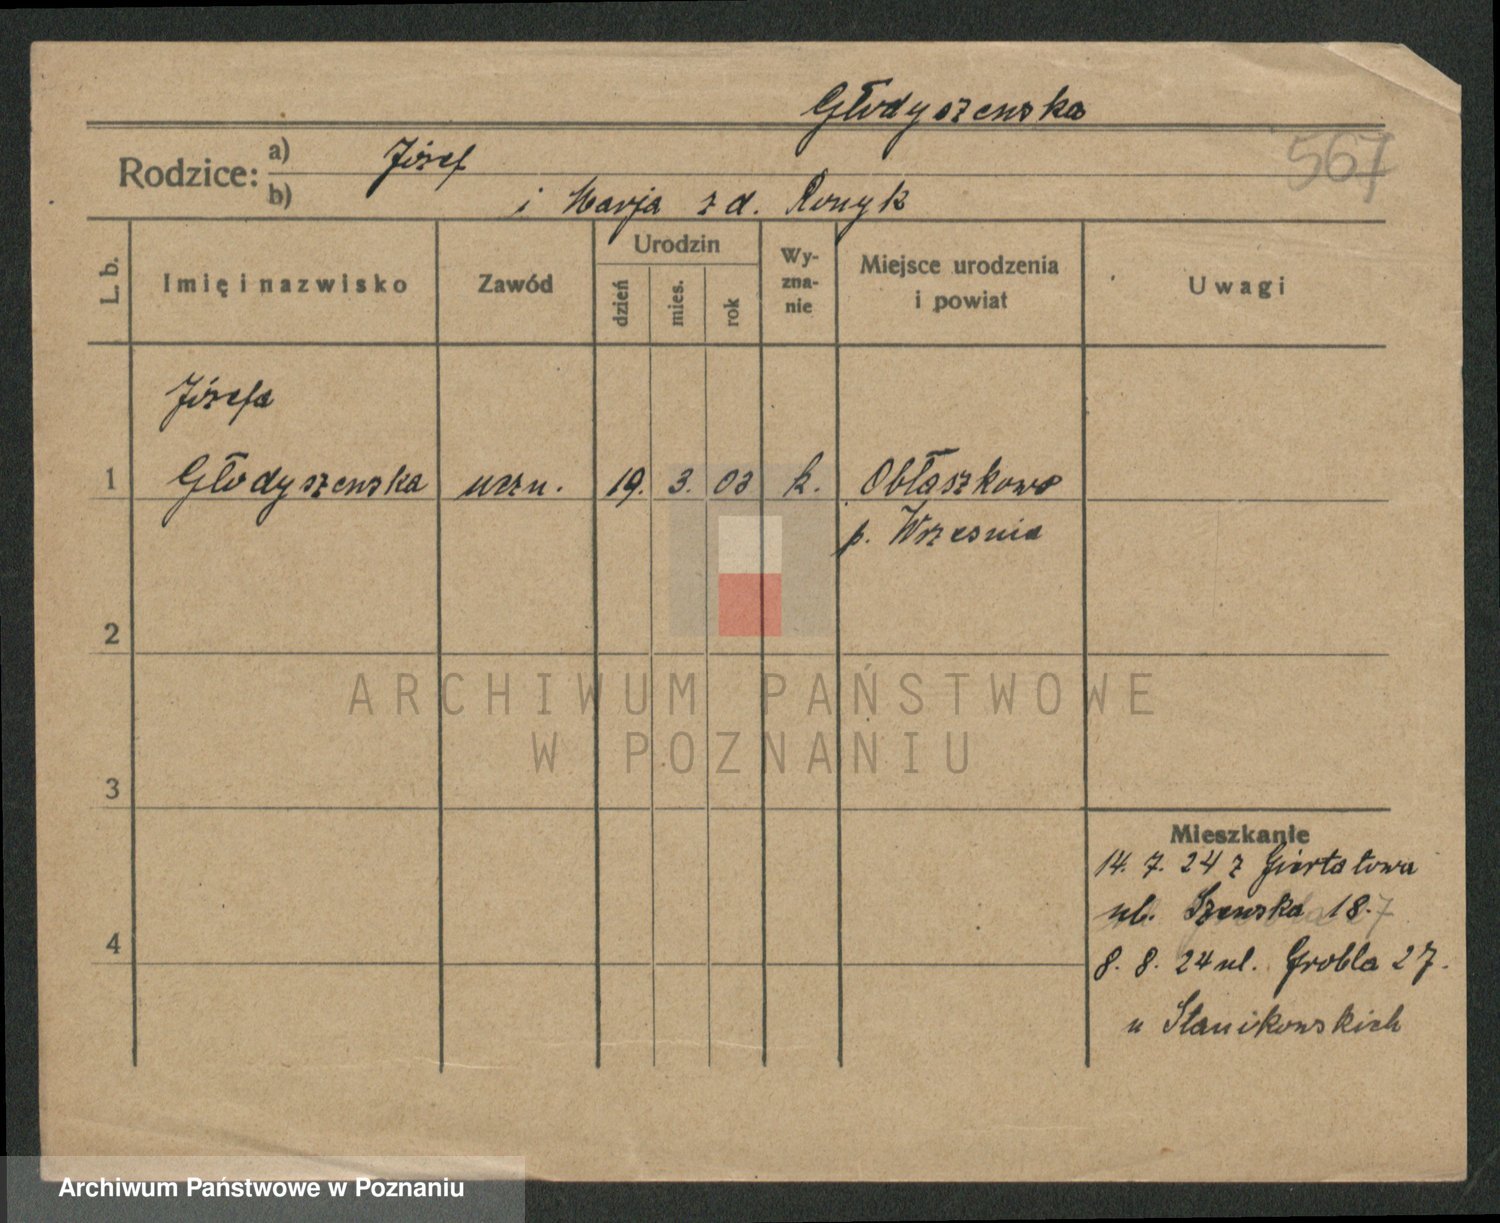 Głodyszewska
567
Rodzice: a) Józef
b) i Marja z d. Ronyk
L. b. Imię i nazwisko Zawód Urodzin dzień mies. rok Wyznanie Miejsce urodzenia i powiat Uwagi
Józefa
1 Głodyszewska uczn. 19. 3. 03 k. Obłaszkowo
p. Wrzesnia
2
ARCHIWUM PAŃSTWOWE
W POZNANIU
3
Mieszkanie
14. 7. 24 z Giertatowa
ul. Szewska 18.
4
8. 8. 24 ul. Grobla 27.
u Stanikowskich
Archiwum Państwowe w Poznaniu